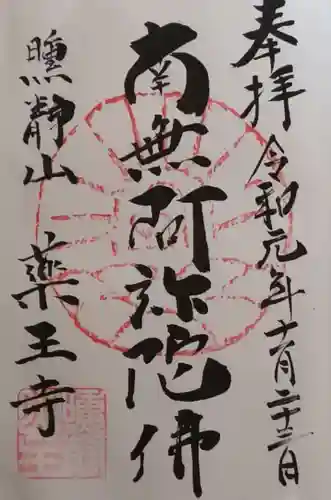 奉拝 令和元年十一月二十三日
南無阿弥陀佛
瞟靜山 薬王寺